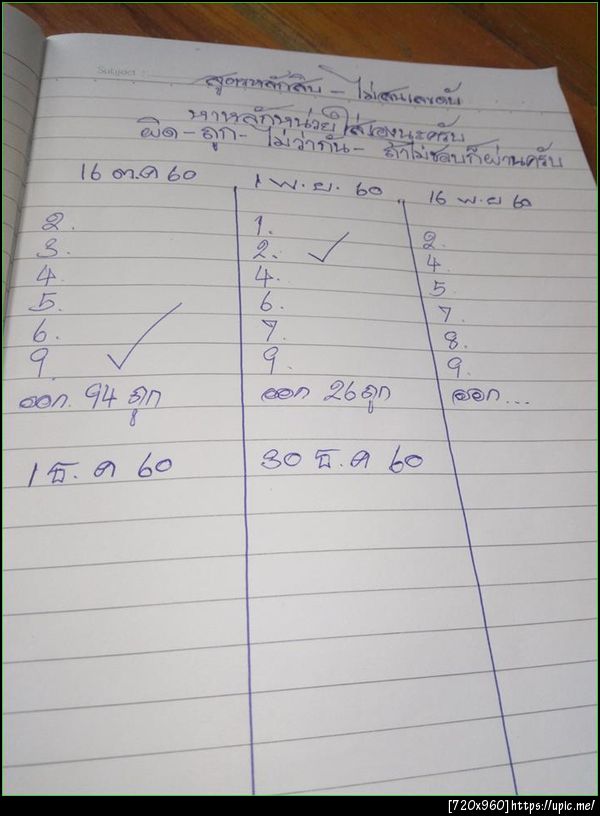 Subject
สูตรหลักสิบ - ไม่เสนเลขดับ
หาหลักหน่วยใส่เองนะครับ
ผิด - ถูก - ไม่ว่ากัน - ถ้าไม่ชอบก็ผ่านครับ
16 ต.ค 60
2.
3.
4
5.
6.
9.
ออก. 94 ถูก
1 พ.ย. 60
1.
2.
4.
6.
7.
9.
ออก 26 ถูก
16 พ.ย 60
2.
4.
5
7.
8.
9.
ออก...
1 ธ.ค 60
30 ธ.ค 60
[720x960]https://upic.me/